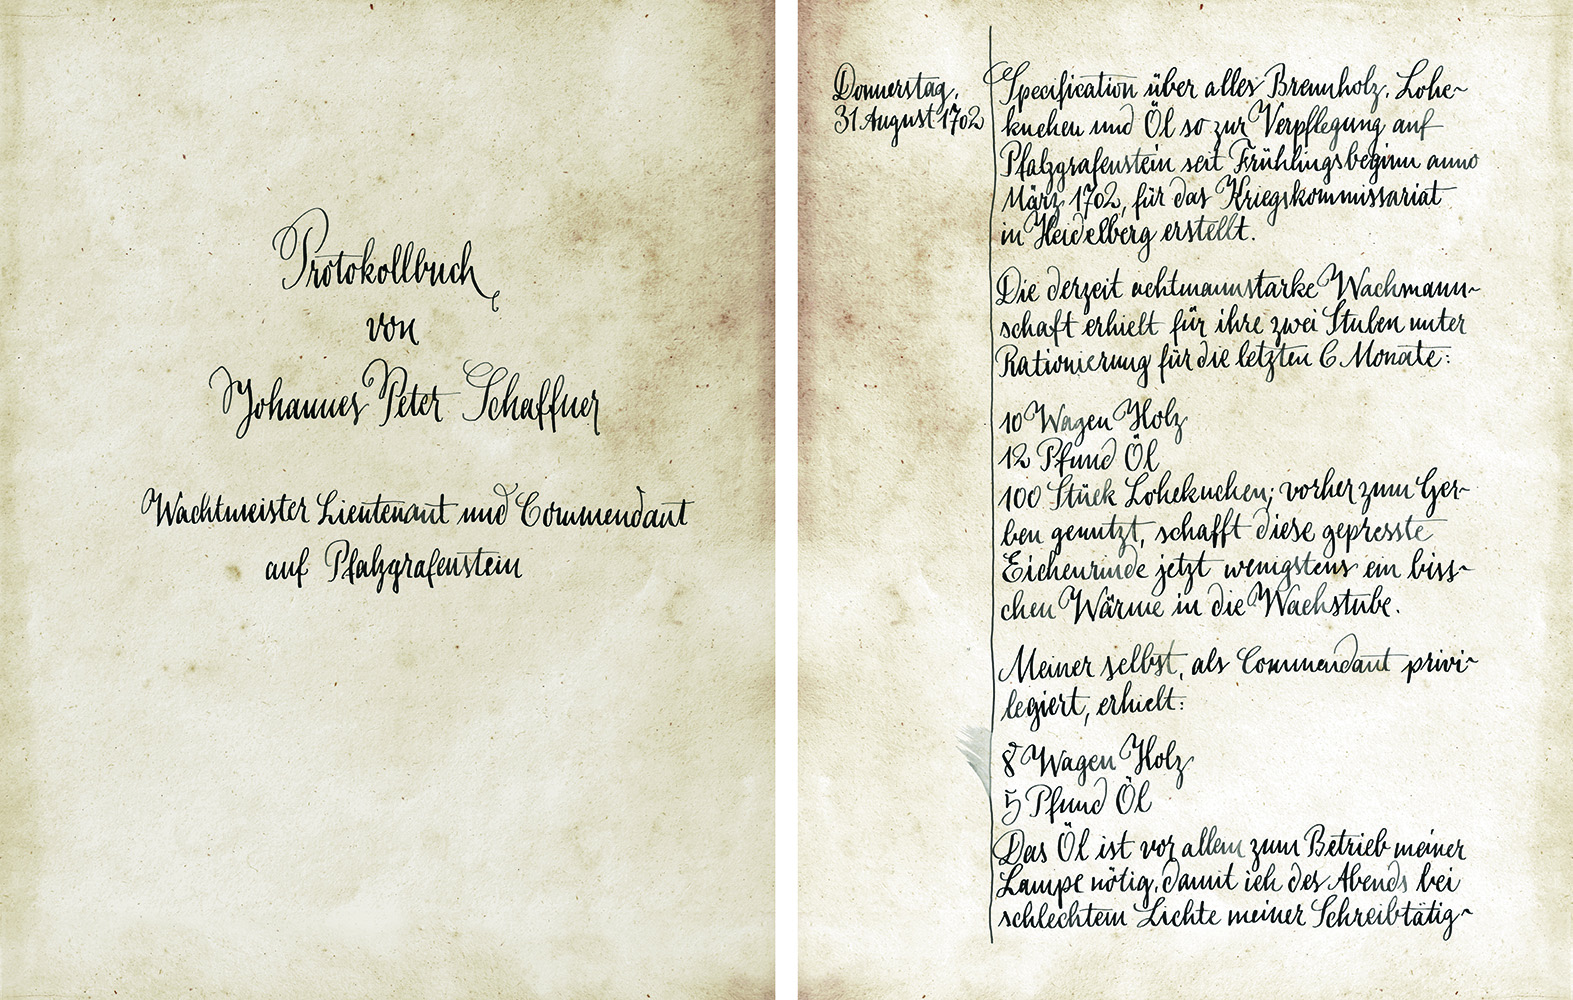 Protokollbuch
von
Johannes Peter Schaffner
Wachtmeister Lieutenant und Commendant
auf Pfalzgrafenstein
Donnerstag,
31 August 1702
Specification über alles Brennholz, Lohe~
kuchen und Öl so zur Verpflegung auf
Pfalzgrafenstein seit Frühlingsbeginn anno
März 1702, für das Kriegskommissariat
in Heidelberg erstellt.
Die derzeit achtmannstarke Wachmann~
schaft erhielt für ihre zwei Stuben unter
Rationierung für die letzten 6 Monate:
10 Wagen Holz
12 Pfund Öl
100 Stück Lohekuchen; vorher zum Ger~
ben genutzt, schafft diese gepresste
Eichenrinde jetzt wenigstens ein biss~
chen Wärme in die Wachstube.
Meiner selbst, als Commendant privi~
legiert, erhielt:
8 Wagen Holz
5 Pfund Öl
Das Öl ist vor allem zum Betrieb meiner
Lampe nötig, damit ich des Abends bei
schlechtem Lichte meiner Schreibtätig~